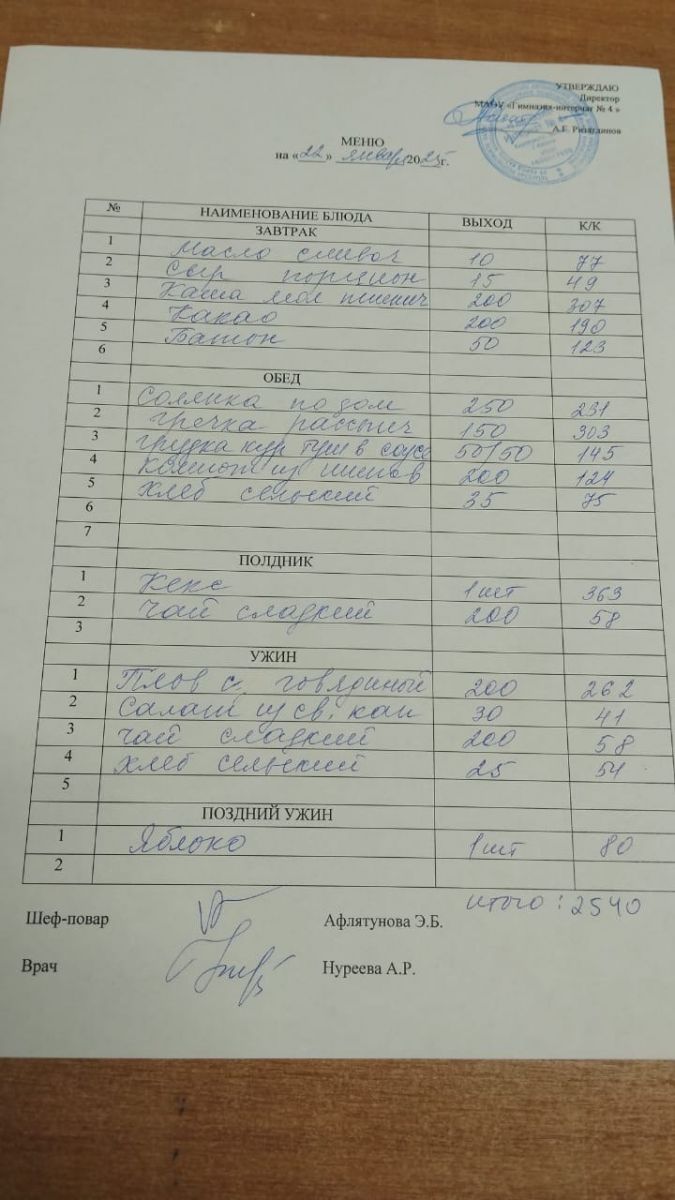 УТВЕРЖДАЮ
Директор
МАОУ «Гимназия-интернат № 4»
А.Г. Ризатдинов
МЕНЮ
на «22» января 2025г.
№ НАИМЕНОВАНИЕ БЛЮДА ВЫХОД К/К
ЗАВТРАК
1 Масло сливоч 10 77
2 Сыр порцион 15 49
3 Каша мол пшенич 200 307
4 Какао 200 190
5 Батон 50 123
6
ОБЕД
1 Солянка по дом 250 231
2 гречка рассыпч 150 303
3 грудка кур туш в соусе 50/50 145
4 Компот из шипов 200 124
5 хлеб сельский 35 75
6
7
ПОЛДНИК
1 Кекс 1 шт 363
2 чай сладкий 200 58
3
УЖИН
1 Плов с говядиной 200 262
2 Салат из св. кап 30 41
3 чай сладкий 200 58
4 хлеб сельский 25 54
5
ПОЗДНИЙ УЖИН
1 Яблоко 1 шт 80
2
итого : 2540
Шеф-повар Афлятунова Э.Б.
Врач Нуреева А.Р.